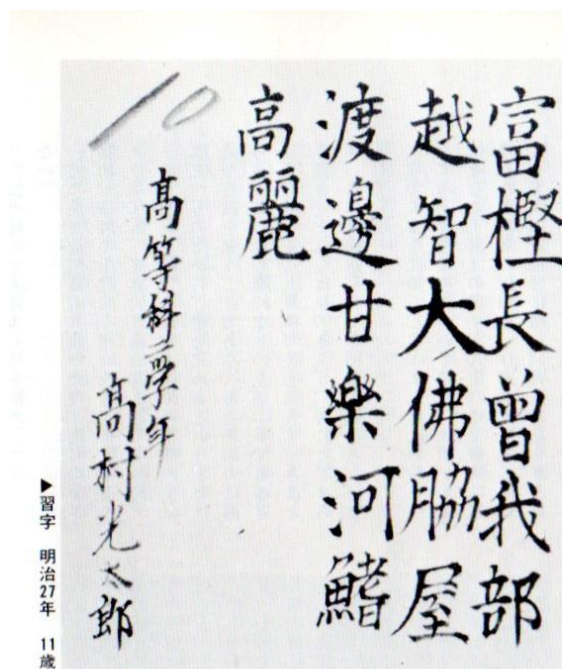 富樫長曾我部
越智大佛脇屋
渡邊甘樂河鰭
高麗
高等科二学年
高村光太郎
10
▶習字 明治27年 11歳